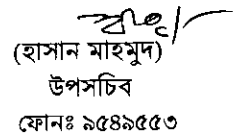 (হাসান মাহমুদ)
উপসচিব
ফোনঃ ৯৫৪৯৫৫৩